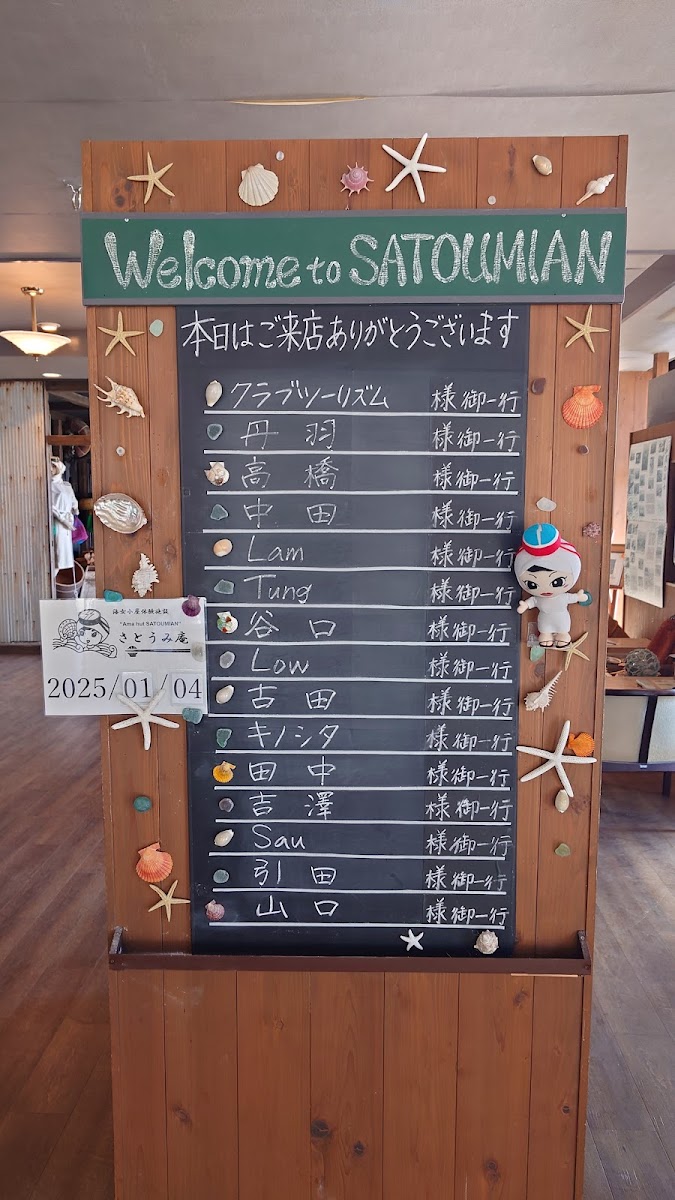 Welcome to SATOUMIAN
本日はご来店ありがとうございます
クラブツーリズム 様御一行
丹羽 様御一行
高橋 様御一行
中田 様御一行
Lam 様御一行
Tung 様御一行
谷口 様御一行
Low 様御一行
古田 様御一行
キノシタ 様御一行
田中 様御一行
吉澤 様御一行
Sau 様御一行
引田 様御一行
山口 様御一行
海女小屋体験施設
"Ama hut SATOUMIAN"
さとうみ庵
2025/01/04